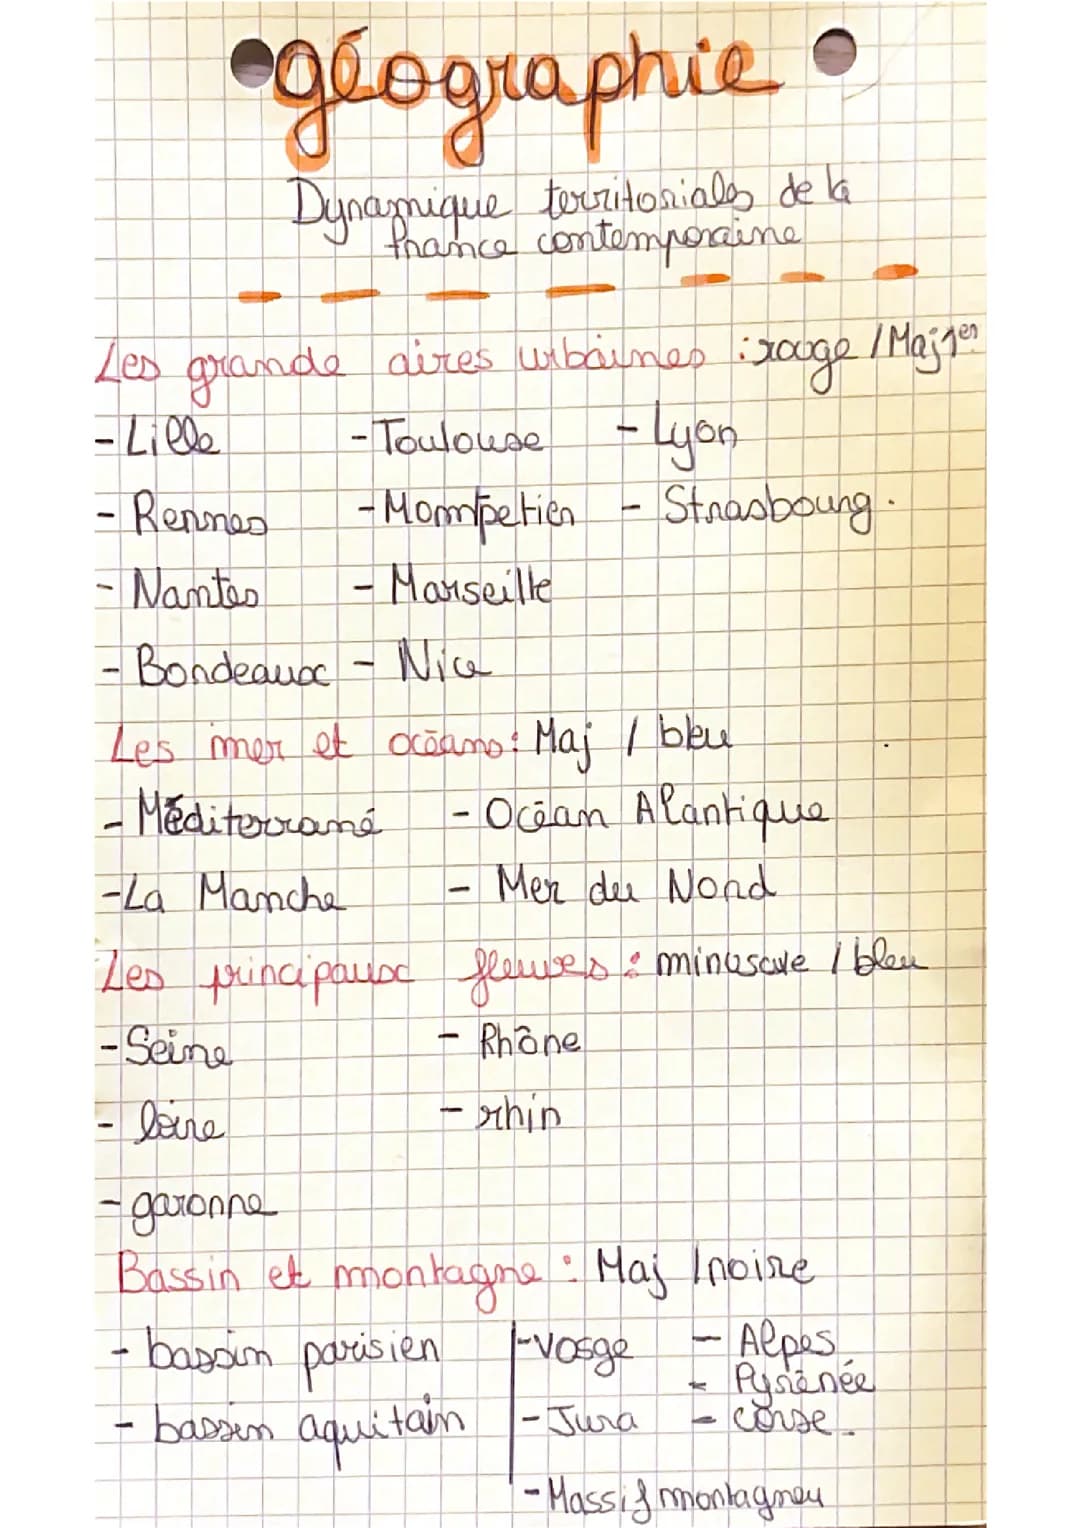 géographie
Dynamique territoriales de la
france contemporaine
Les grande aires urbaines : rouge / Maj 1er
- Lille - Toulouse - Lyon
- Rennes - Montpelier - Strasbourg.
- Nantes - Marseille
- Bordeaux - Nice
Les mer et océans : Maj / bleu
- Méditerrané - Océan Alantique
- La Manche - Mer du Nord
Les principaux fleuves : minuscule / bleu
- Seine - Rhône
- loire - rhin
- garonne
Bassin et montagne : Maj / noire
- bassin parisien - vosge - Alpes
- Pyrénée
- bassin aquitain - Jura - corse.
- Massif montagneu